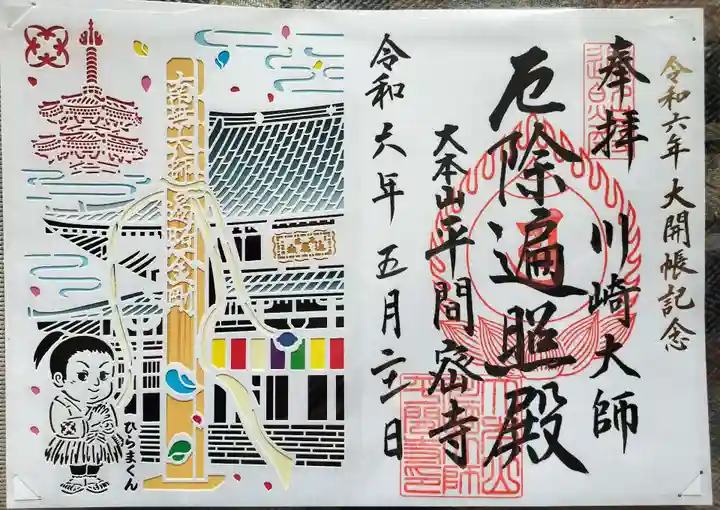 令和六年 大開帳記念
奉拝 川崎大師
厄除遍照殿
大本山平間密寺
令和六年五月二十一日
南無大師遍照金剛
ひらまくん